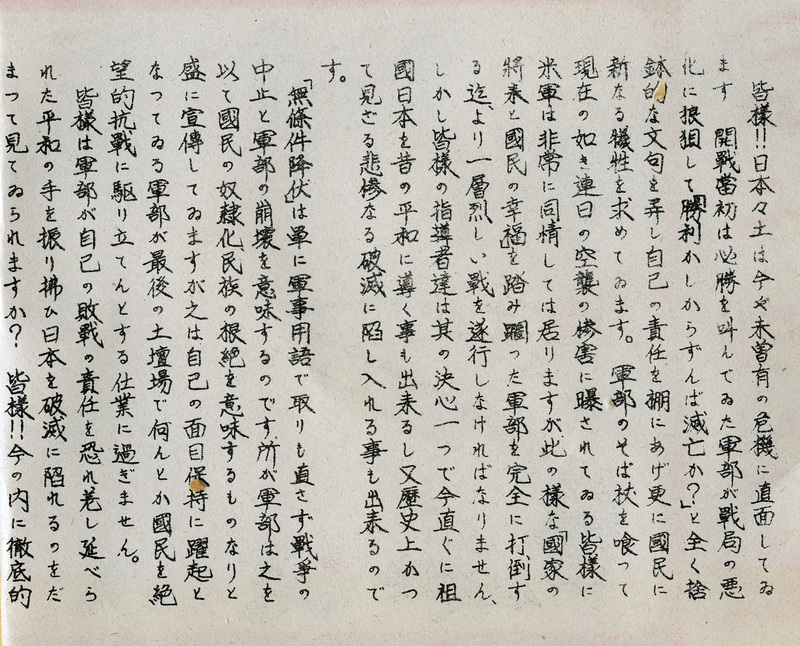 皆様!!日本々土は今や未曽有の危機に直面してゐ
ます 開戦當初は必勝を叫んでゐた軍部が戦局の悪
化に狼狙して「勝利かしからずんば滅亡か?」と全く捨
鉢的な文句を弄し自己の責任を棚にあげ更に國民に
新なる犠牲を求めてゐます。軍部のそば杖を喰って
現在の如き連日の空襲の惨害に曝されてゐる皆様に
米軍は非常に同情しては居りますが此の様な「國家の
將来と國民の幸福」を踏み躙った軍部を完全に打倒す
る迄、より一層烈しい戦を遂行しなければなりません、
しかし皆様の指導者達は其の決心一つで今直ぐに祖
國日本を昔の平和に導く事も出来るし又歴史上かつ
て見ざる悲惨なる破滅に陥し入れる事も出来るので
す。
「無條件降伏」は単に軍事用語で取りも直さず戦爭の
中止と軍部の崩壊を意味するのです所が軍部は之を
以て國民の奴隷化民族の根絶を意味するものなりと
盛に宣傳してゐますが之は自己の面目保持に躍起と
なつてゐる軍部が最後の土壇場で何んとか國民を絶
望的抗戦に駆り立てんとする仕業に過ぎません。
皆様は軍部が自己の敗戦の責任を恐れ差し延べら
れた平和の手を振り拂ひ日本を破滅に陥れるのをだ
まつて見てゐられますか? 皆様!!今の内に徹底的